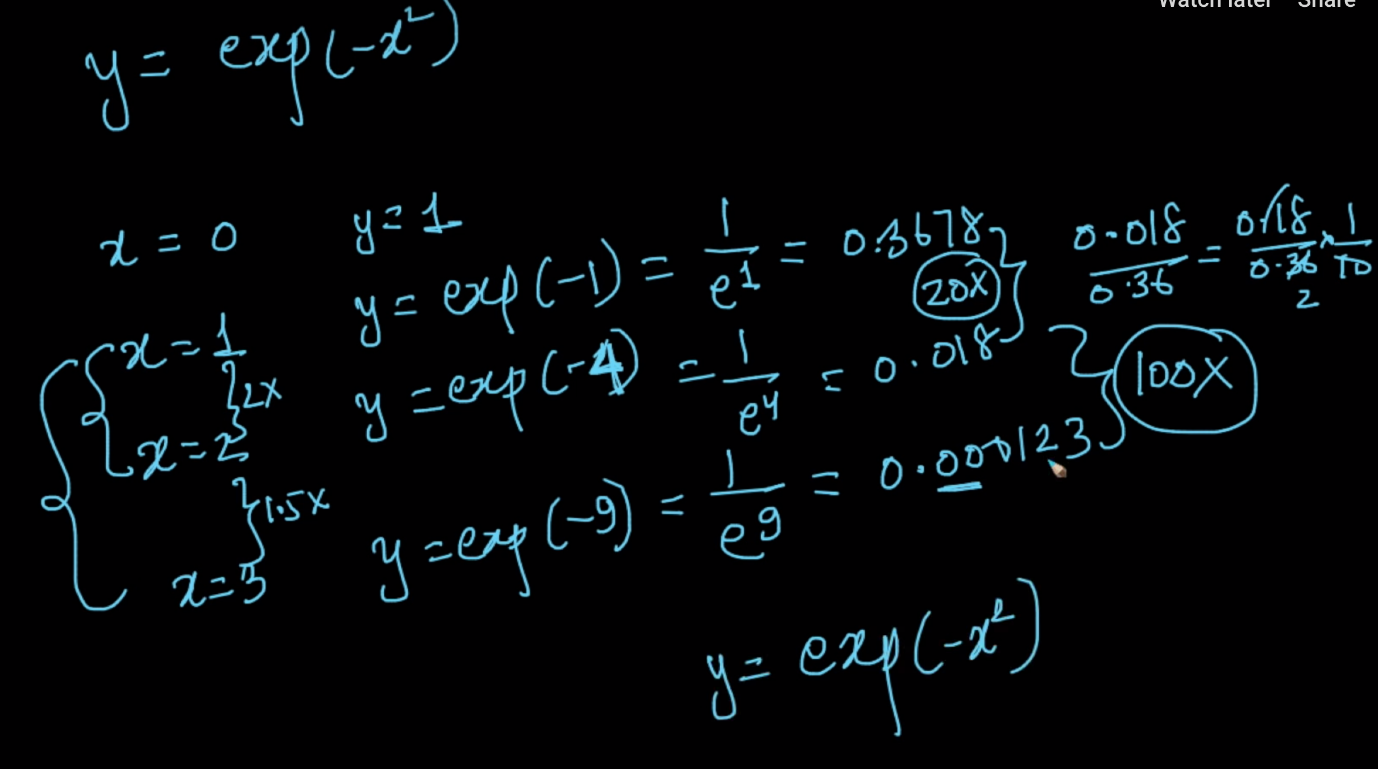 Watch later Share
y = exp(-x²)
x = 0 y = 1
x = 1 y = exp(-1) = 1/e¹ = 0.3678 0.018/0.36 = 0.18/0.36 × 1/10
2
20X
2X
x = 2 y = exp(-4) = 1/e⁴ = 0.018
100X
1.5X
x = 3 y = exp(-9) = 1/e⁹ = 0.000123
y = exp(-x²)